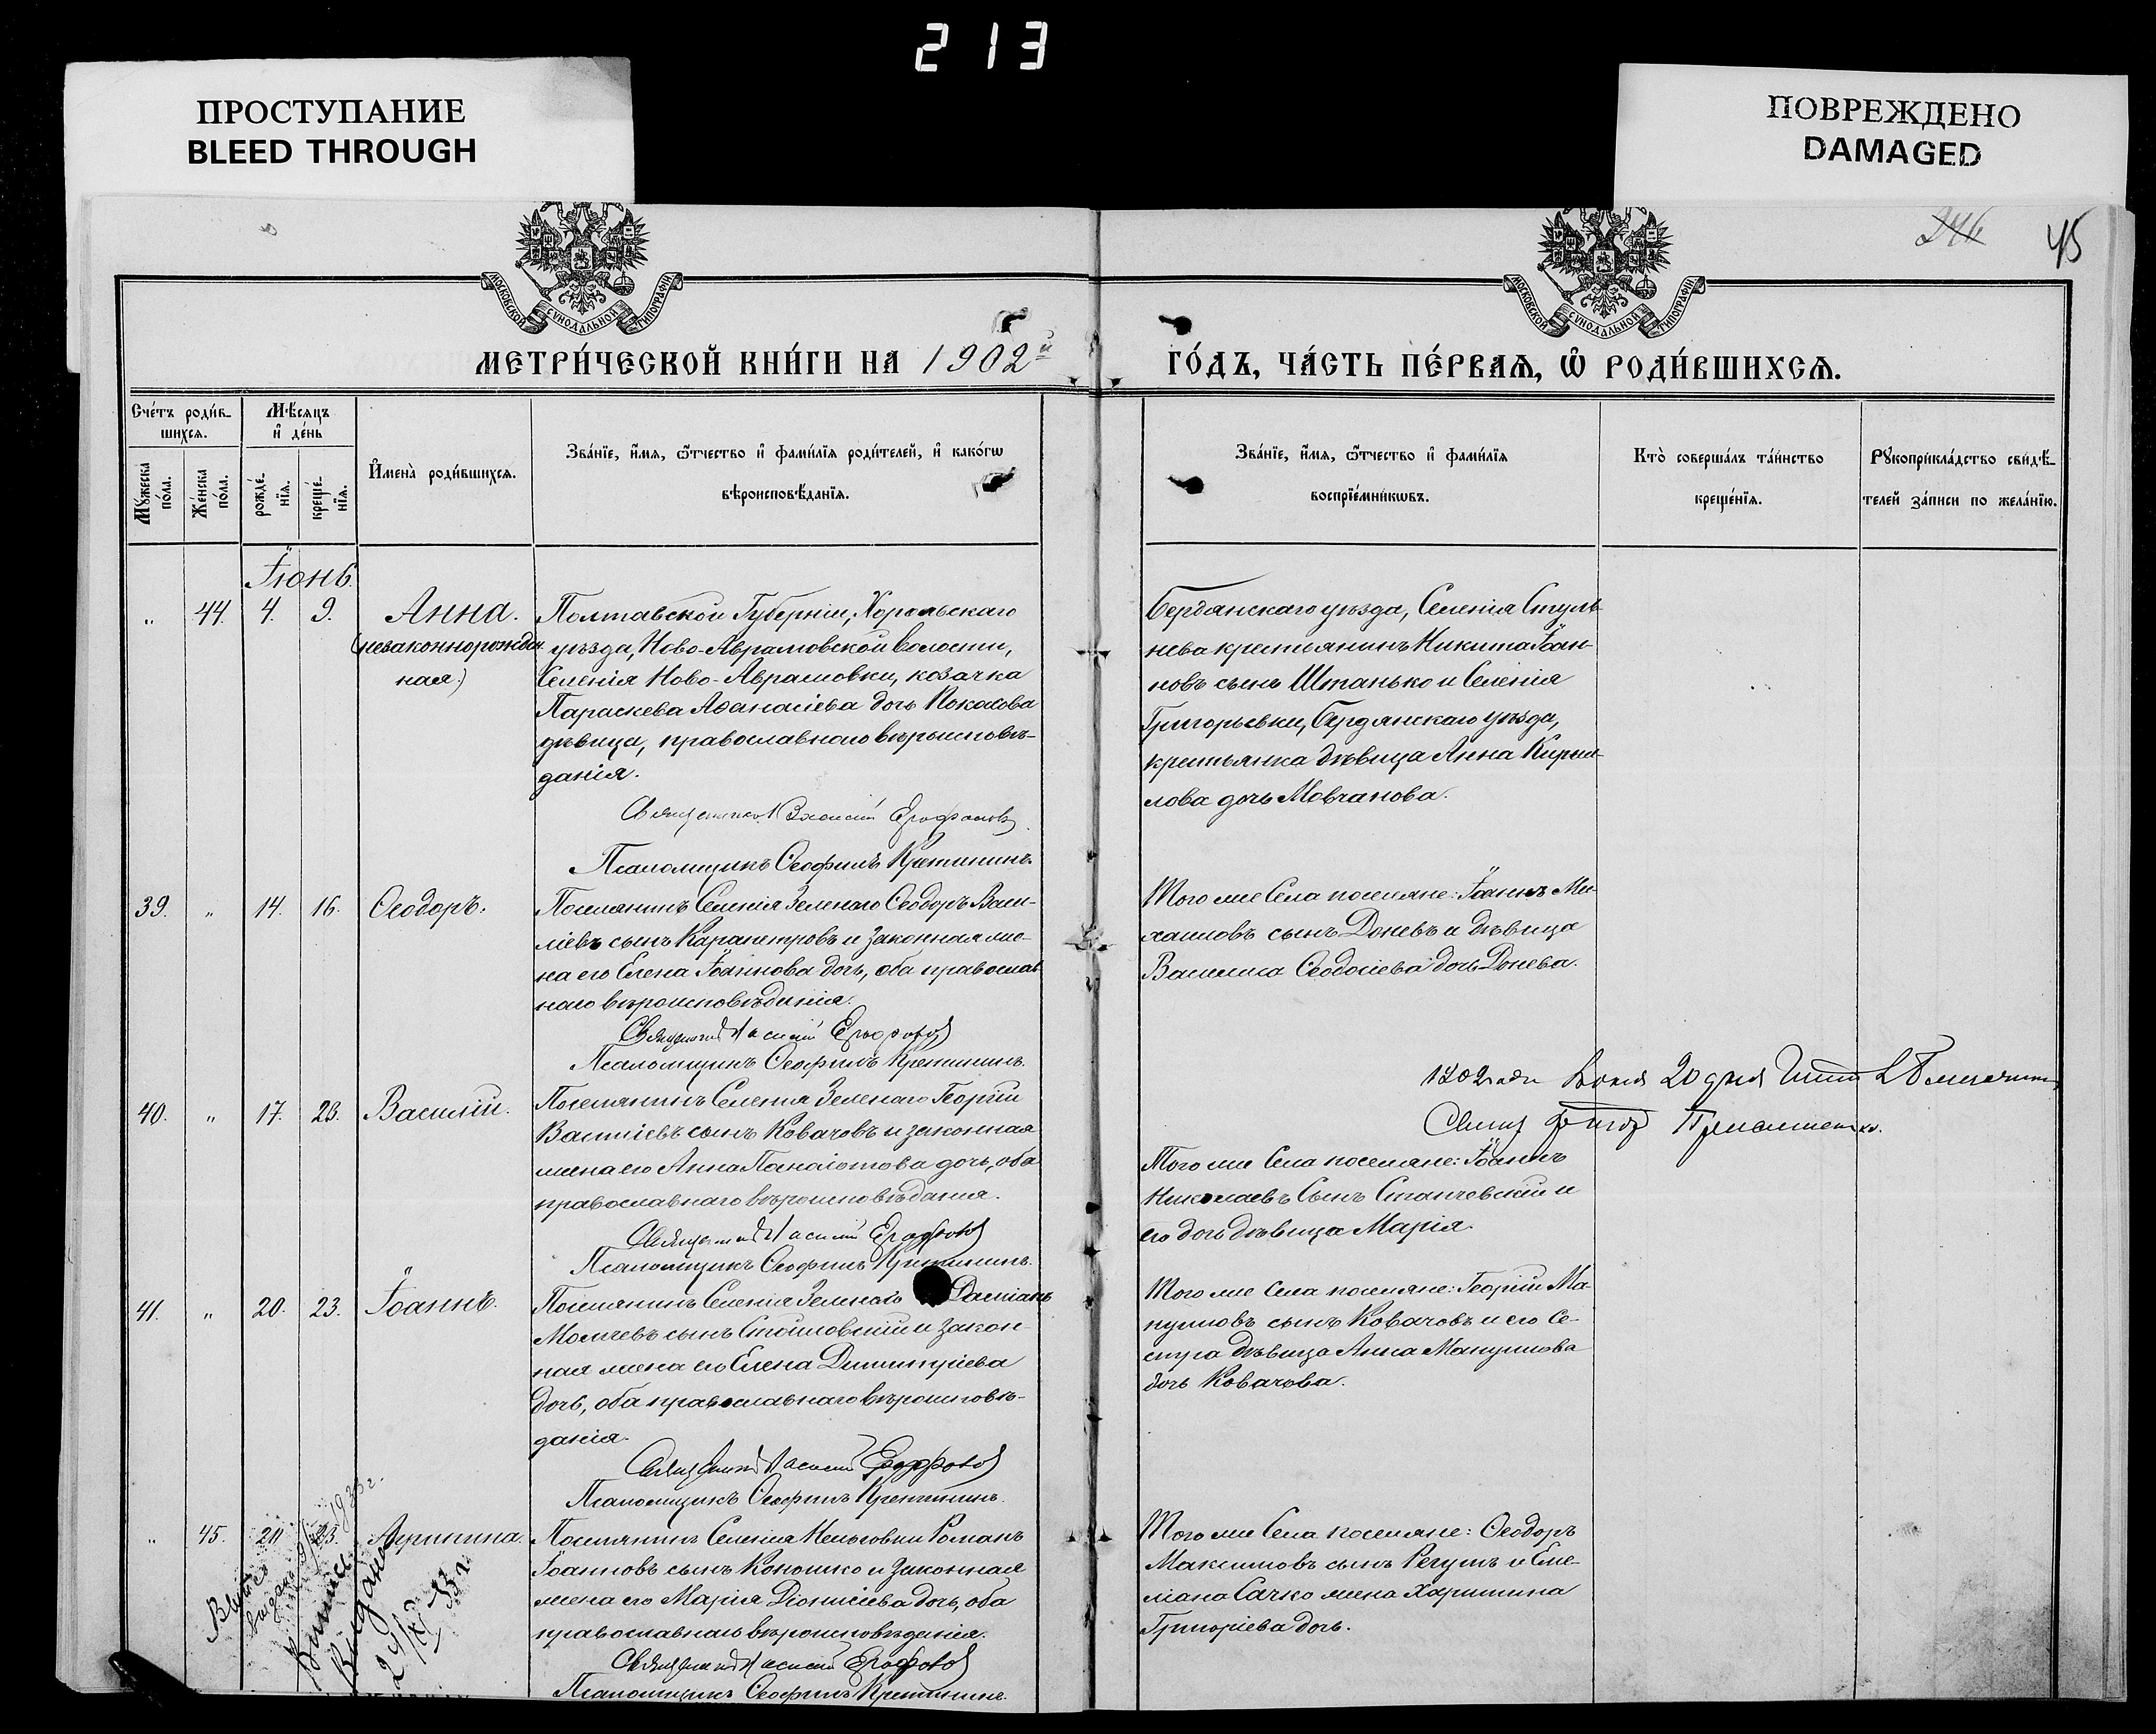 213
ПРОСТУПАНИЕ
BLEED THROUGH
ПОВРЕЖДЕНО
DAMAGED
246
45
МОСКОВСКОЙ СУНОДАЛЬНОЙ ТИПОГРАФІИ
МОСКОВСКОЙ СУНОДАЛЬНОЙ ТИПОГРАФІИ
МЕТРИ́ЧЕСКОЙ КНИ́ГИ НА 1902й
ГО́ДЪ, ЧА́СТЬ ПЕ́РВАѦ, Ѽ РОДИ́ВШИХСѦ.
Сче́тъ роди́в-
шихсѧ.
Мѣ́сѧцъ
и҆ де́нь
Мꙋ́жеска по́ла.
Же́нска по́ла.
рожде́-
нїѧ.
креще́-
нїѧ.
И҆мена̀ роди́вшихсѧ.
Зва́нїе, и҆́мѧ, ѻ҆́тчество и҆ фами́лїѧ роди́телей, и҆ како́гѡ
вѣроисповѣ́данїѧ.
Зва́нїе, и҆́мѧ, ѻ҆́тчество и҆ фами́лїѧ
воспрїе́мникѡвъ.
Кто̀ соверша́лъ та́инство
креще́нїѧ.
Рꙋкоприкла́дство свидѣ́-
телей за́писи по жела́нїю.
Іюнь.
" 44. 4. 9. Анна.
(незаконнорожден-
ная.)
Полтавской Губерніи, Хорольскаго
уѣзда, Ново-Аврамовской волости,
Селенія Ново-Аврамовки, козачка
Параскева Аѳанасіева дочь Кокасова
дѣвица, православнаго вѣроисповѣ-
данія.
Священникъ Василій Ерофаловъ
Псаломщикъ Ѳеофилъ Кретининъ.
Бердянскаго уѣзда, Селенія Стуль-
нева крестьянинъ Никита Іоан-
новъ сынъ Штанько и Селенія
Григорьевки, Бердянскаго уѣзда,
крестьянка дѣвица Анна Кирил-
лова дочь Мовчанова.
39. " 14. 16. Ѳеодоръ.
Поселянинъ Селенія Зеленаго Ѳеодоръ Васи-
ліевъ сынъ Карапетровъ и законная же-
на его Елена Іоаннова дочь, оба православ-
наго вѣроисповѣданія.
Священникъ Василій
Псаломщикъ Ѳеофилъ Кретининъ.
Того же Села поселяне: Іоаннъ Ми-
хаиловъ сынъ Доневъ и дѣвица
Василиса Ѳеодосіева дочь Донева.
1902 года Іюня 20 дня
40. " 17. 23. Василій.
Поселянинъ Селенія Зеленаго Георгій
Василіевъ сынъ Ковачовъ и законная
жена его Анна Панаіотова дочь, оба
православнаго вѣроисповѣданія.
Священникъ Василій
Псаломщикъ Ѳеофилъ Кретининъ.
Того же Села поселяне: Іоаннъ
Николаевъ Сынъ Станчевскій и
его дочь дѣвица Марія.
41. " 20. 23. Іоаннъ.
Поселянинъ Селенія Зеленаго Даміанъ
Молчевъ сынъ Стоиловскій и закон-
ная жена его Елена Димитріева
дочь, оба православнаго вѣроисповѣ-
данія.
Священникъ Василій
Псаломщикъ Ѳеофилъ Кретининъ.
Того же Села поселяне: Георгій Ма-
нуиловъ сынъ Ковачовъ и его Се-
стра дѣвица Анна Мануилова
дочь Ковачова.
" 45. 20. 23. Агрипина.
Поселянинъ Селенія Романъ
Іоанновъ сынъ Кононко и Законная
жена его Марія Діонисіева дочь, оба
православнаго вѣроисповѣданія.
Священникъ Василій
Псаломщикъ Ѳеофилъ Кретининъ.
Того же Села поселяне: Ѳеодоръ
Максимовъ сынъ Регушъ и Еме-
ліана Сачко жена Харитина
Григоріева дочь.
Выпись
Выдана